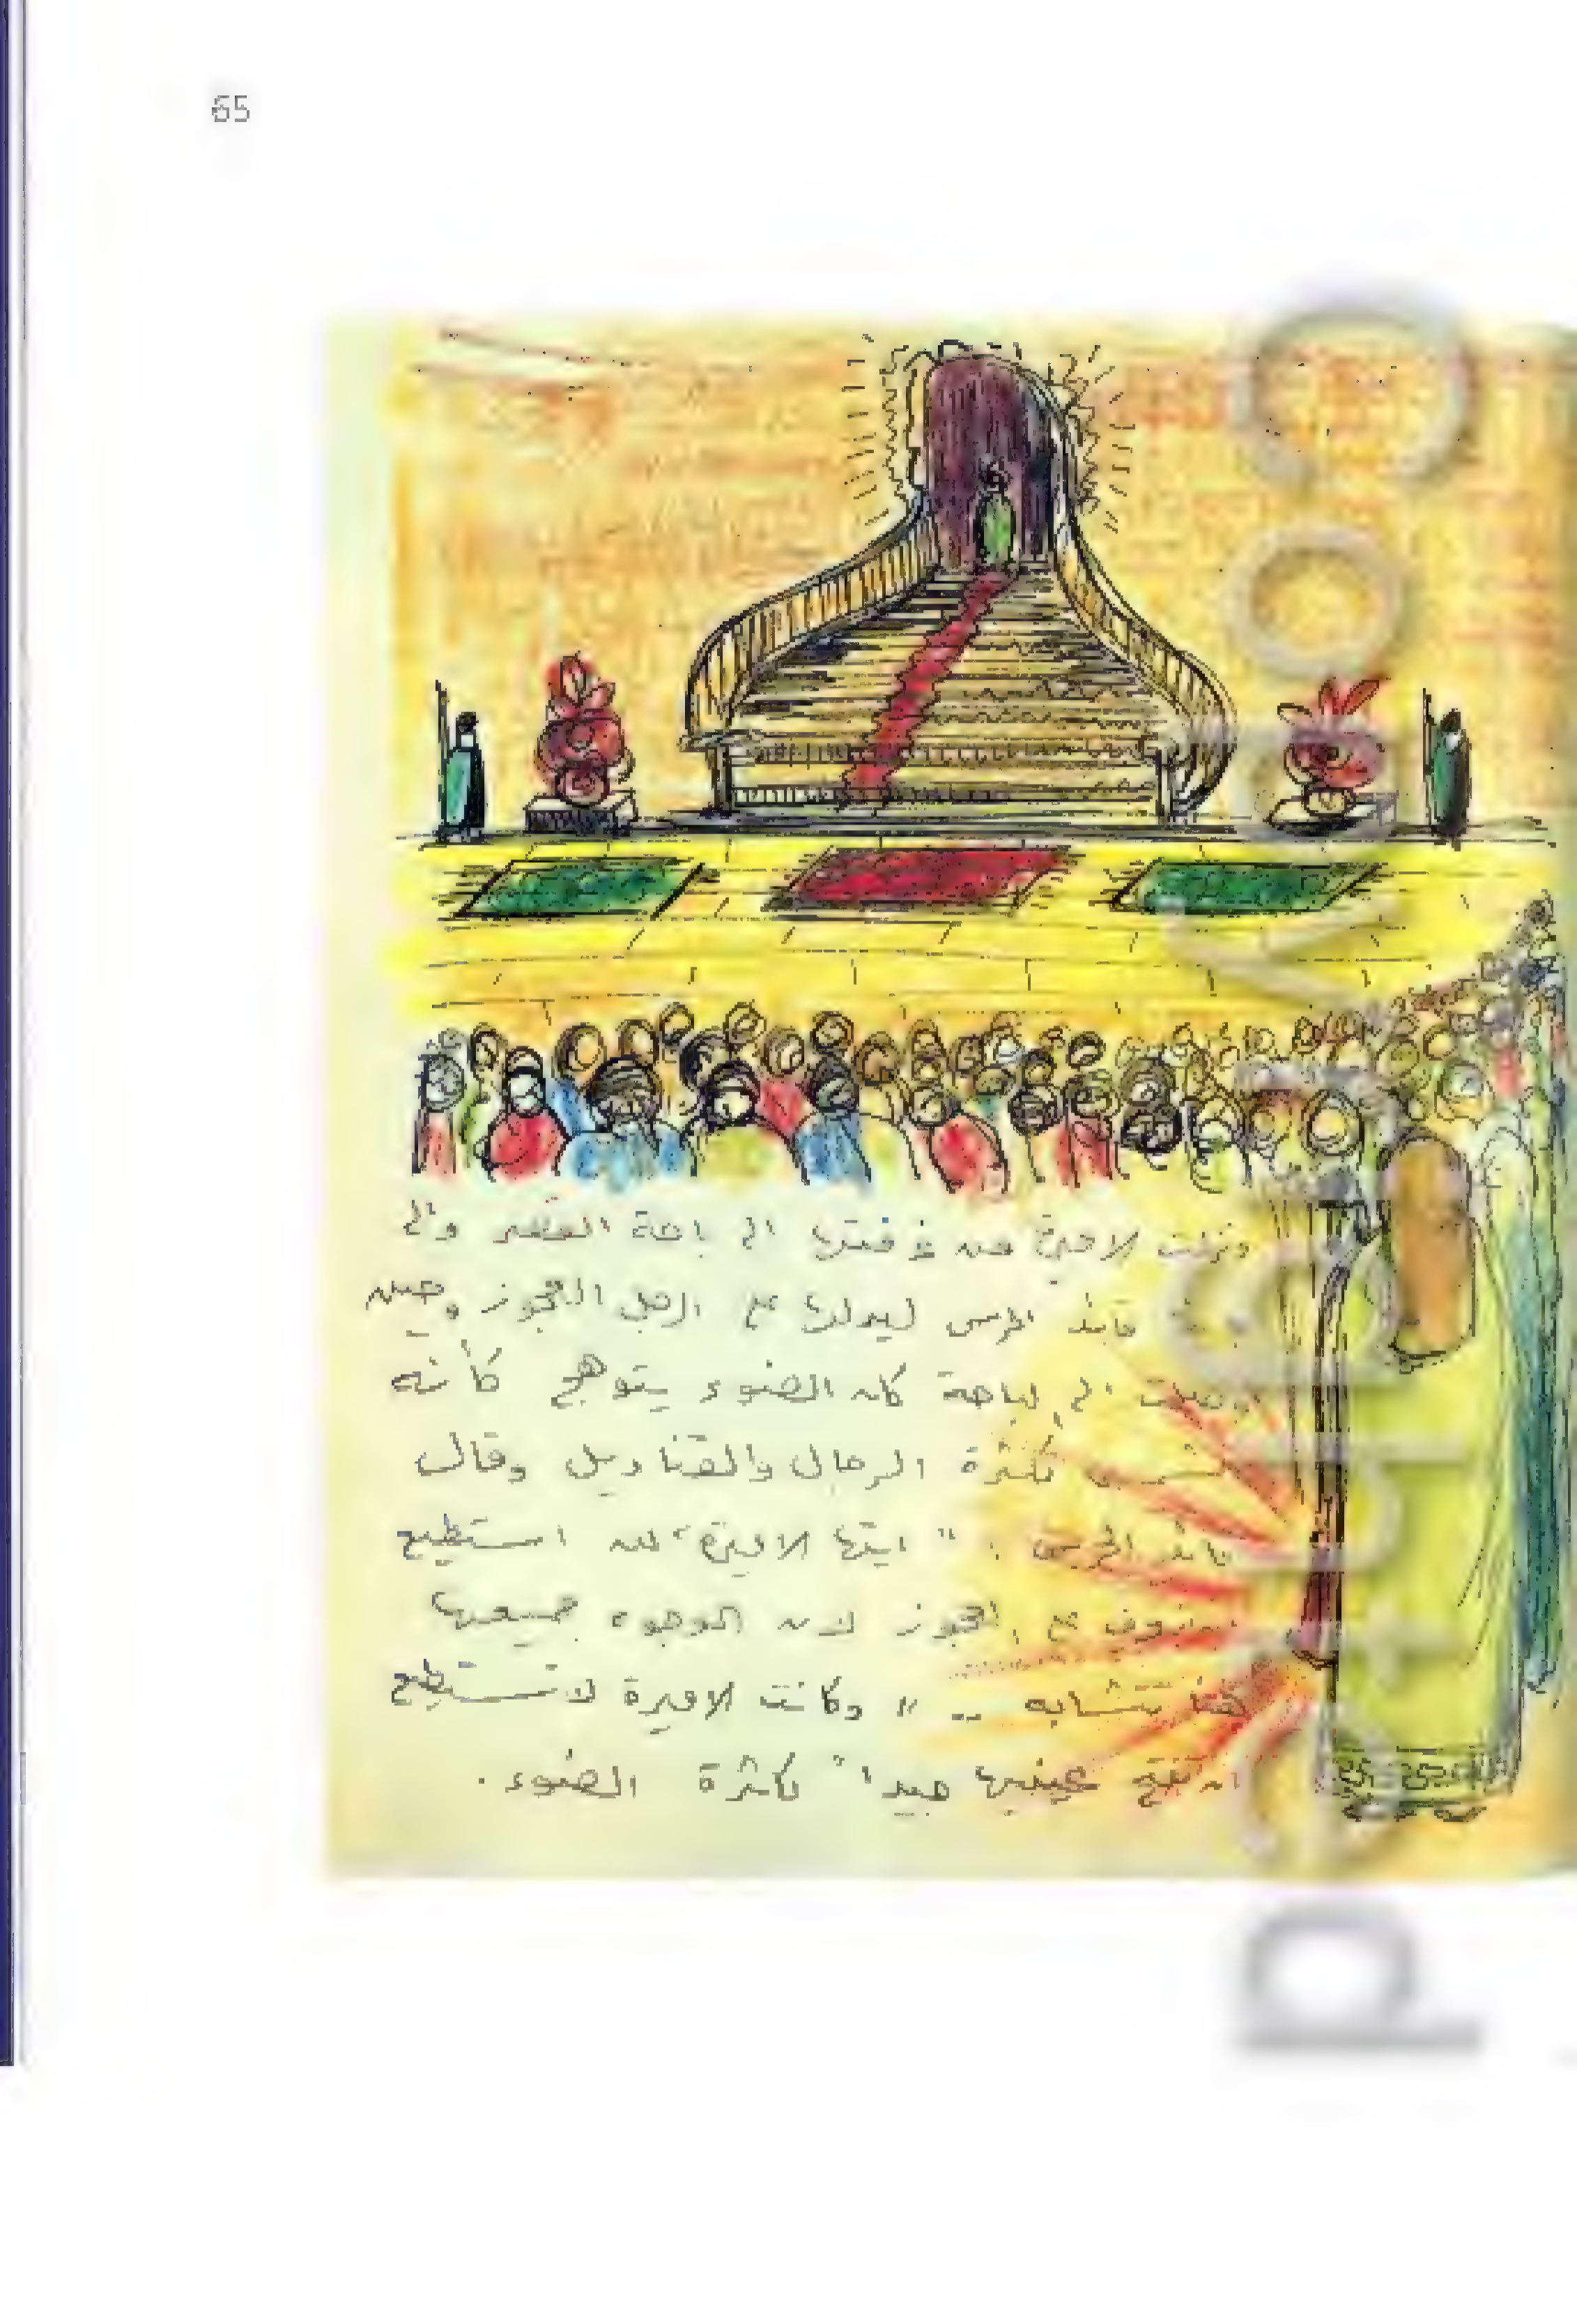 65
ونزلت الاميرة من غرفتها الى باحة القصر والى
قائد الحرس ليدلها على الرجل العجوز وحين
وصلت الى الباحة كان الضوء يتوهج كأنه
الشمس لكثرة الرجال والقناديل وقال
قائد الحرس : " ايتها الاميرة، لن استطيع
على العجوز لان الوجوه جميعها
هنا تتشابه .. " وكانت الاميرة لا تستطيع
ان تفتح عينيها جيداً لكثرة الضوء .